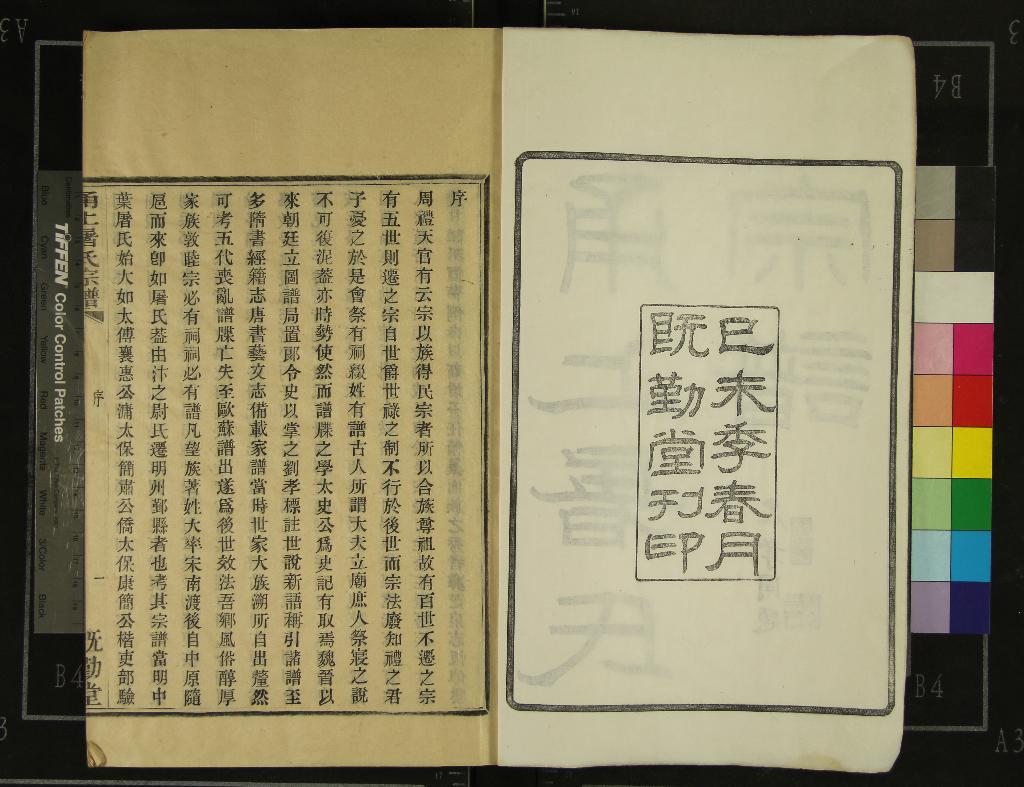 己未季春月
既勤堂刊印
序
周禮天官有云宗以族得民宗者所以合族尊祖故有百世不遷之宗
有五世則遷之宗自世爵世祿之制不行於後世而宗法廢知禮之君
子憂之於是會祭有祠綴姓有譜古人所謂大夫立廟庶人祭寢之說
不可復泥葢亦時勢使然而譜牒之學太史公爲史記有取焉魏晉以
來朝廷立圖譜局置郎令史以掌之劉孝標註世說新語稱引諸譜至
多隋書經籍志唐書藝文志備載家譜當時世家大族溯所自出釐然
可考五代喪亂譜牒亡失至歐蘇譜出遂爲後世效法吾鄉風俗醇厚
家族敦睦宗必有祠祠必有譜凡望族著姓大率宋南渡後自中原隨
扈而來卽如屠氏葢由汴之尉氏遷明州鄞縣者也考其宗譜當明中
葉屠氏始大如太傅襄惠公滽太保簡肅公僑太保康簡公楷吏部驗
甬上屠氏宗譜
序
一
既勤堂
TIFFEN Color Control Patches
Blue
Cyan
Green
Yellow
Red
Magenta
White
3/Color
Black
B4
B4
B4
A3
A3